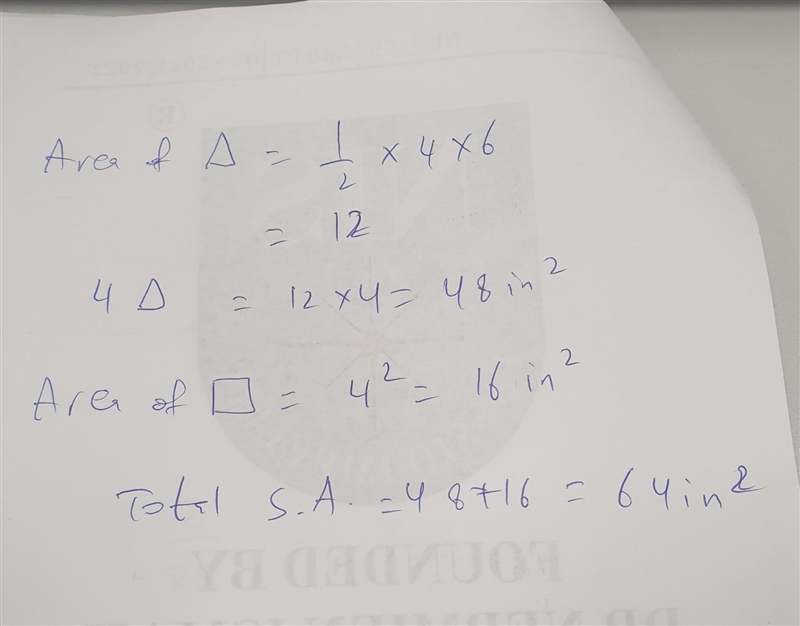 Area of Δ = 1/2 × 4 × 6
= 12
4 Δ = 12 × 4 = 48 in²
Area of □ = 4² = 16 in²
Total S.A. = 48 + 16 = 64 in²
FOUNDED BY